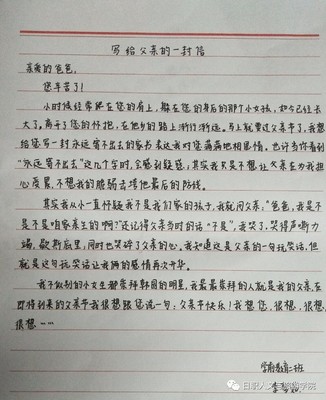 写给父亲的一封信
亲爱的爸爸:
您辛苦了!
小时候经常爬在您的肩上,躲在您的身后的那个小女孩,如今已经长
大了。离开了您的怀抱,在他乡的路上渐行渐远。马上就要过父亲节了,我想
给您写一封永远寄不出去的家书来达我对您满满地相思情,也许当你看到
"永远寄不出去"这几个字时,会感到疑惑,其实我只是不想让父亲在为我担
心受累,不想我的脆弱去增他最后的防线。
其实我从小一直怀疑我不是我们家的孩子,我就问父亲:"爸爸,我是不
是不是咱家亲生的啊?"还记得父亲当时的话"不是",我哭了,哭得声嘶力
竭,歇斯底里,同时也哭碎了父亲的心。我知道这是父亲的一句玩笑话,但
就是这句玩笑话让我俩的感情再次升华。
我不似别的小女生那崇拜韩国的明星,我最最崇拜的人就是我的父亲,在
即将到来的父亲节我很想跟您说一句:父亲节快乐!我想您,很想,很想,
很想……
学前教育二班
日职人文与旅游学院